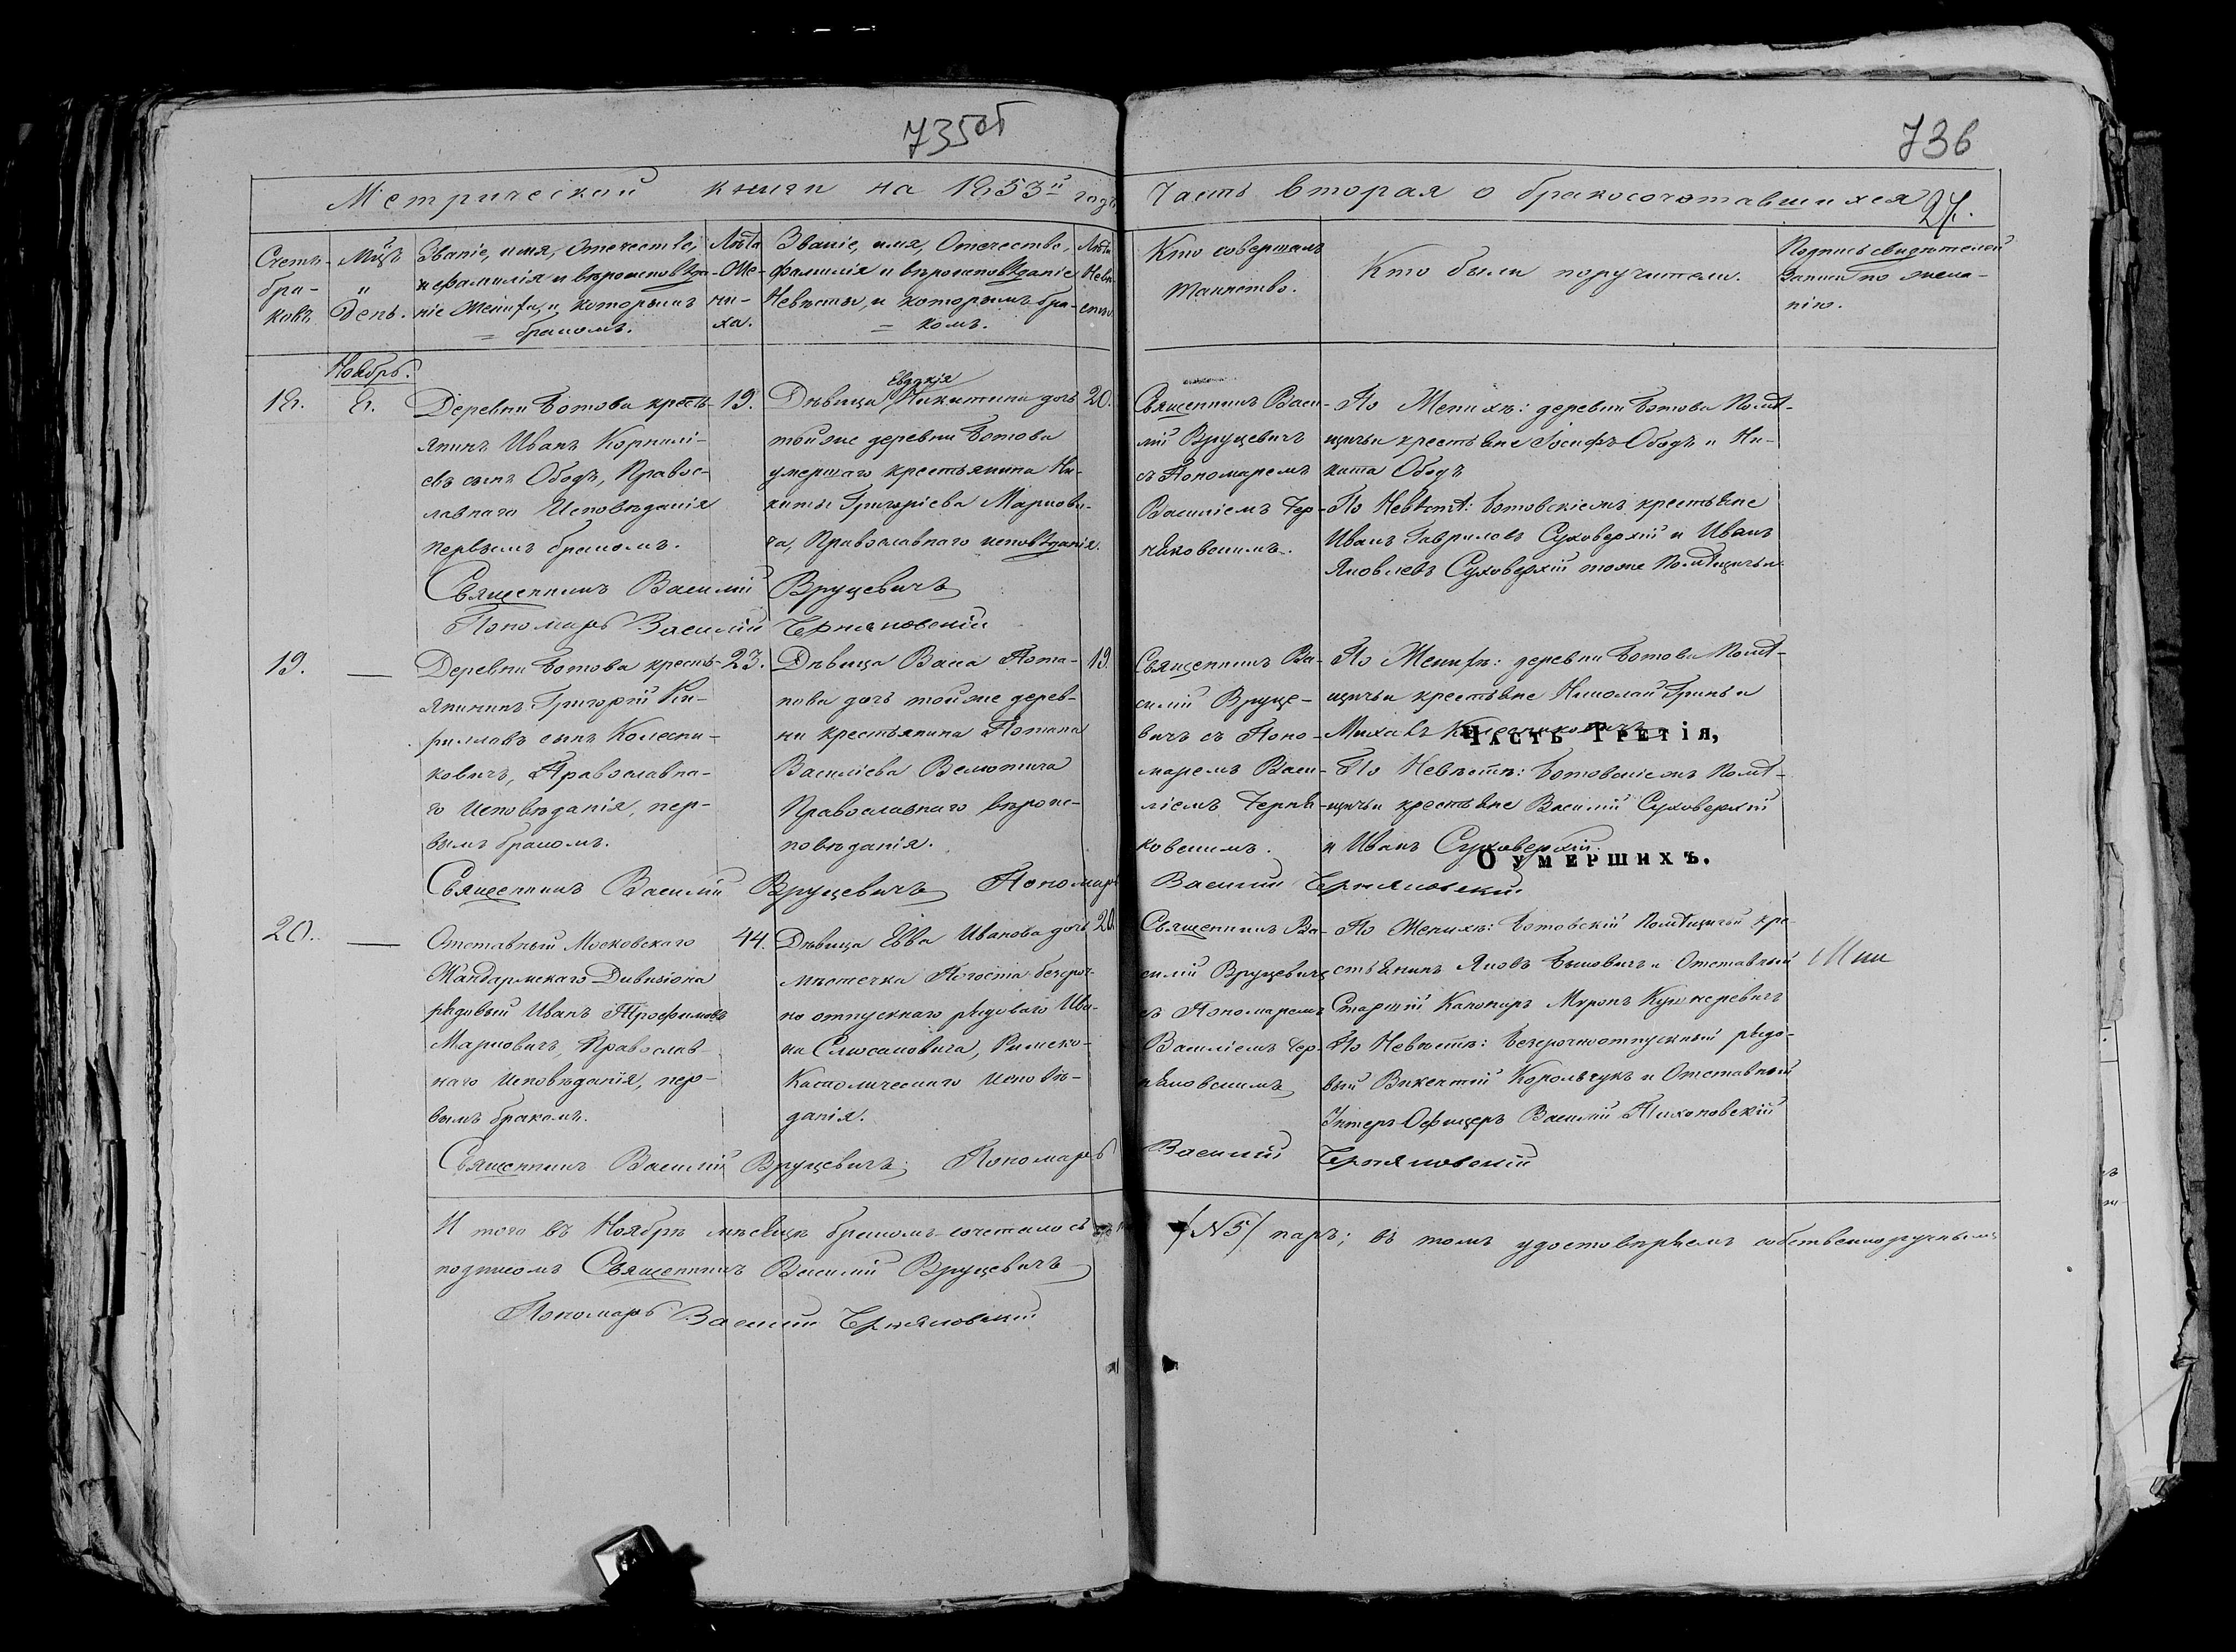 735об
736
Метрической книги на 1853й годъ
Часть вторая о бракосочетавшихся
27.
Счетъ
бра-
ковъ
Мцъ
и
день.
Званіе, имя, Отечество,
и фамилія и вѣроисповѣда-
ніе Жениха, и которымъ
бракомъ.
Лѣта
Же-
ни-
ха.
Званіе, имя, Отечество,
фамилія и вѣроисповѣданіе
Невѣсты, и которымъ бра-
комъ.
Лѣта
Невѣ-
сты
Кто совершалъ
таинство.
Кто были поручители.
Подпись свидѣтелей
записи по жела-
нію.
Ноябрь.
18.
8.
Деревни Ботова кресть-
янинъ Иванъ Корнилі-
евъ сынъ Ободъ, Правос-
лавнаго Исповѣданія
первымъ бракомъ.
19.
Евдокія
Дѣвица Никитина дочь
тойже деревни Ботова
умершаго крестьянина Ни-
киты Григоріева Маркови-
ча, Православнаго исповѣданія.
20.
Священникъ Васи-
лій Вруцевичъ
съ Пономаремъ
Василіемъ Чер-
няковскимъ.
По Женихѣ: деревни Ботова Помѣ-
щичьи крестьяне Іосифъ Ободъ и Ни-
кита Ободъ
По Невѣстѣ: Ботовскіемъ крестьяне
Иванъ Гавриловъ Суховерхій и Иванъ
Яковлевъ Суховерхій тоже Помѣщичьи.
Священникъ Василій Вруцевичъ
Пономарь Василій Черняковскій
19.
—
Деревни Ботова кресть-
янинъ Григорій Ки-
рилловъ сынъ Колесни-
ковичъ, Православна-
го Исповѣданія, пер-
вымъ бракомъ.
23.
Дѣвица Васа Пота-
пова дочь тойже дерев-
ни крестьянина Потапа
Василіева Велютича
Православнаго вѣроис-
повѣданія.
19.
Священникъ Ва-
силій Вруце-
вичъ съ Поно-
маремъ Васи-
ліемъ Черня-
ковскимъ.
По Женихѣ: деревни Ботова Помѣ-
щичьи крестьяне Николай Гринь и
Михаилъ Колесниковичъ
Часть Третія,
По Невѣстѣ: Ботовскіемъ Помѣ-
щичьи крестьяне Василій Суховерхій
и Иванъ Суховерхій.
О умершихъ.
Священникъ Василій Вруцевичъ Пономарь Василій Черняковскій
20.
—
Отставный Московскаго
Жандармскаго Дивизіона
рядовый Иванъ Трофимовъ
Марковичъ, Православ-
наго Исповѣданія, пер-
вымъ бракомъ.
44.
Дѣвица Евва Иванова дочь
мѣстечка Погоста безсроч-
но отпускнаго рядоваго Ива-
на Слюсаковича, Римско-
Католическаго Исповѣ-
данія.
20.
Священникъ Ва-
силій Вруцевичъ
съ Пономаремъ
Василіемъ Чер-
няковскимъ
По Женихѣ: Ботовскій Помѣщичій кре-
стьянинъ Яковъ и Отставный
Старшій Миронъ Кушнеревичъ
По Невѣстѣ: Безсрочноотпускный рядо-
вый Викентій Корольчукъ и Отставный
Унтеръ-Офицеръ Василій Тихоновскій
Священникъ Василій Вруцевичъ; Пономарь Василій Черняковскій
И того въ Ноябрѣ мѣсяцѣ бракомъ сочеталось /№5/ паръ; въ томъ удостовѣряемъ собственноручнымъ
подписомъ Священникъ Василій Вруцевичъ
Пономарь Василій Черняковскій